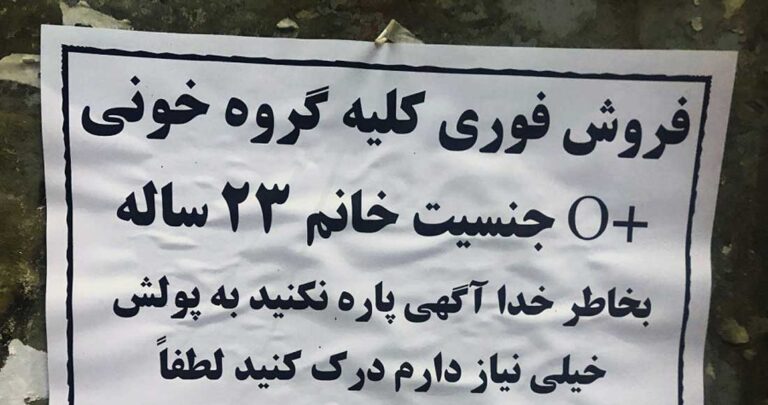 فروش فوری کلیه گروه خونی
O+ جنسیت خانم ۲۳ ساله
بخاطر خدا آگهی پاره نکنید به پولش
خیلی نیاز دارم درک کنید لطفاً